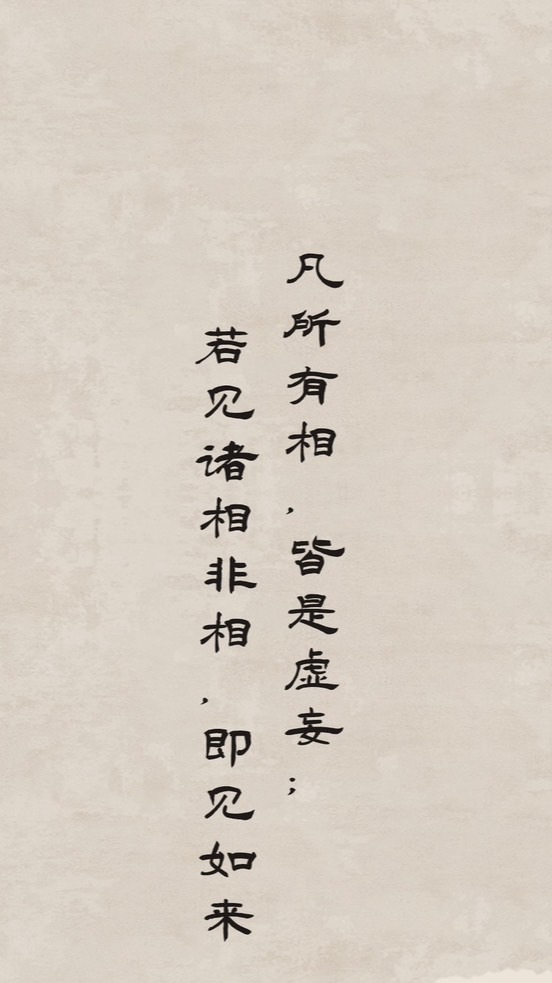 凡所有相，皆是虚妄；
若见诸相非相，即见如来